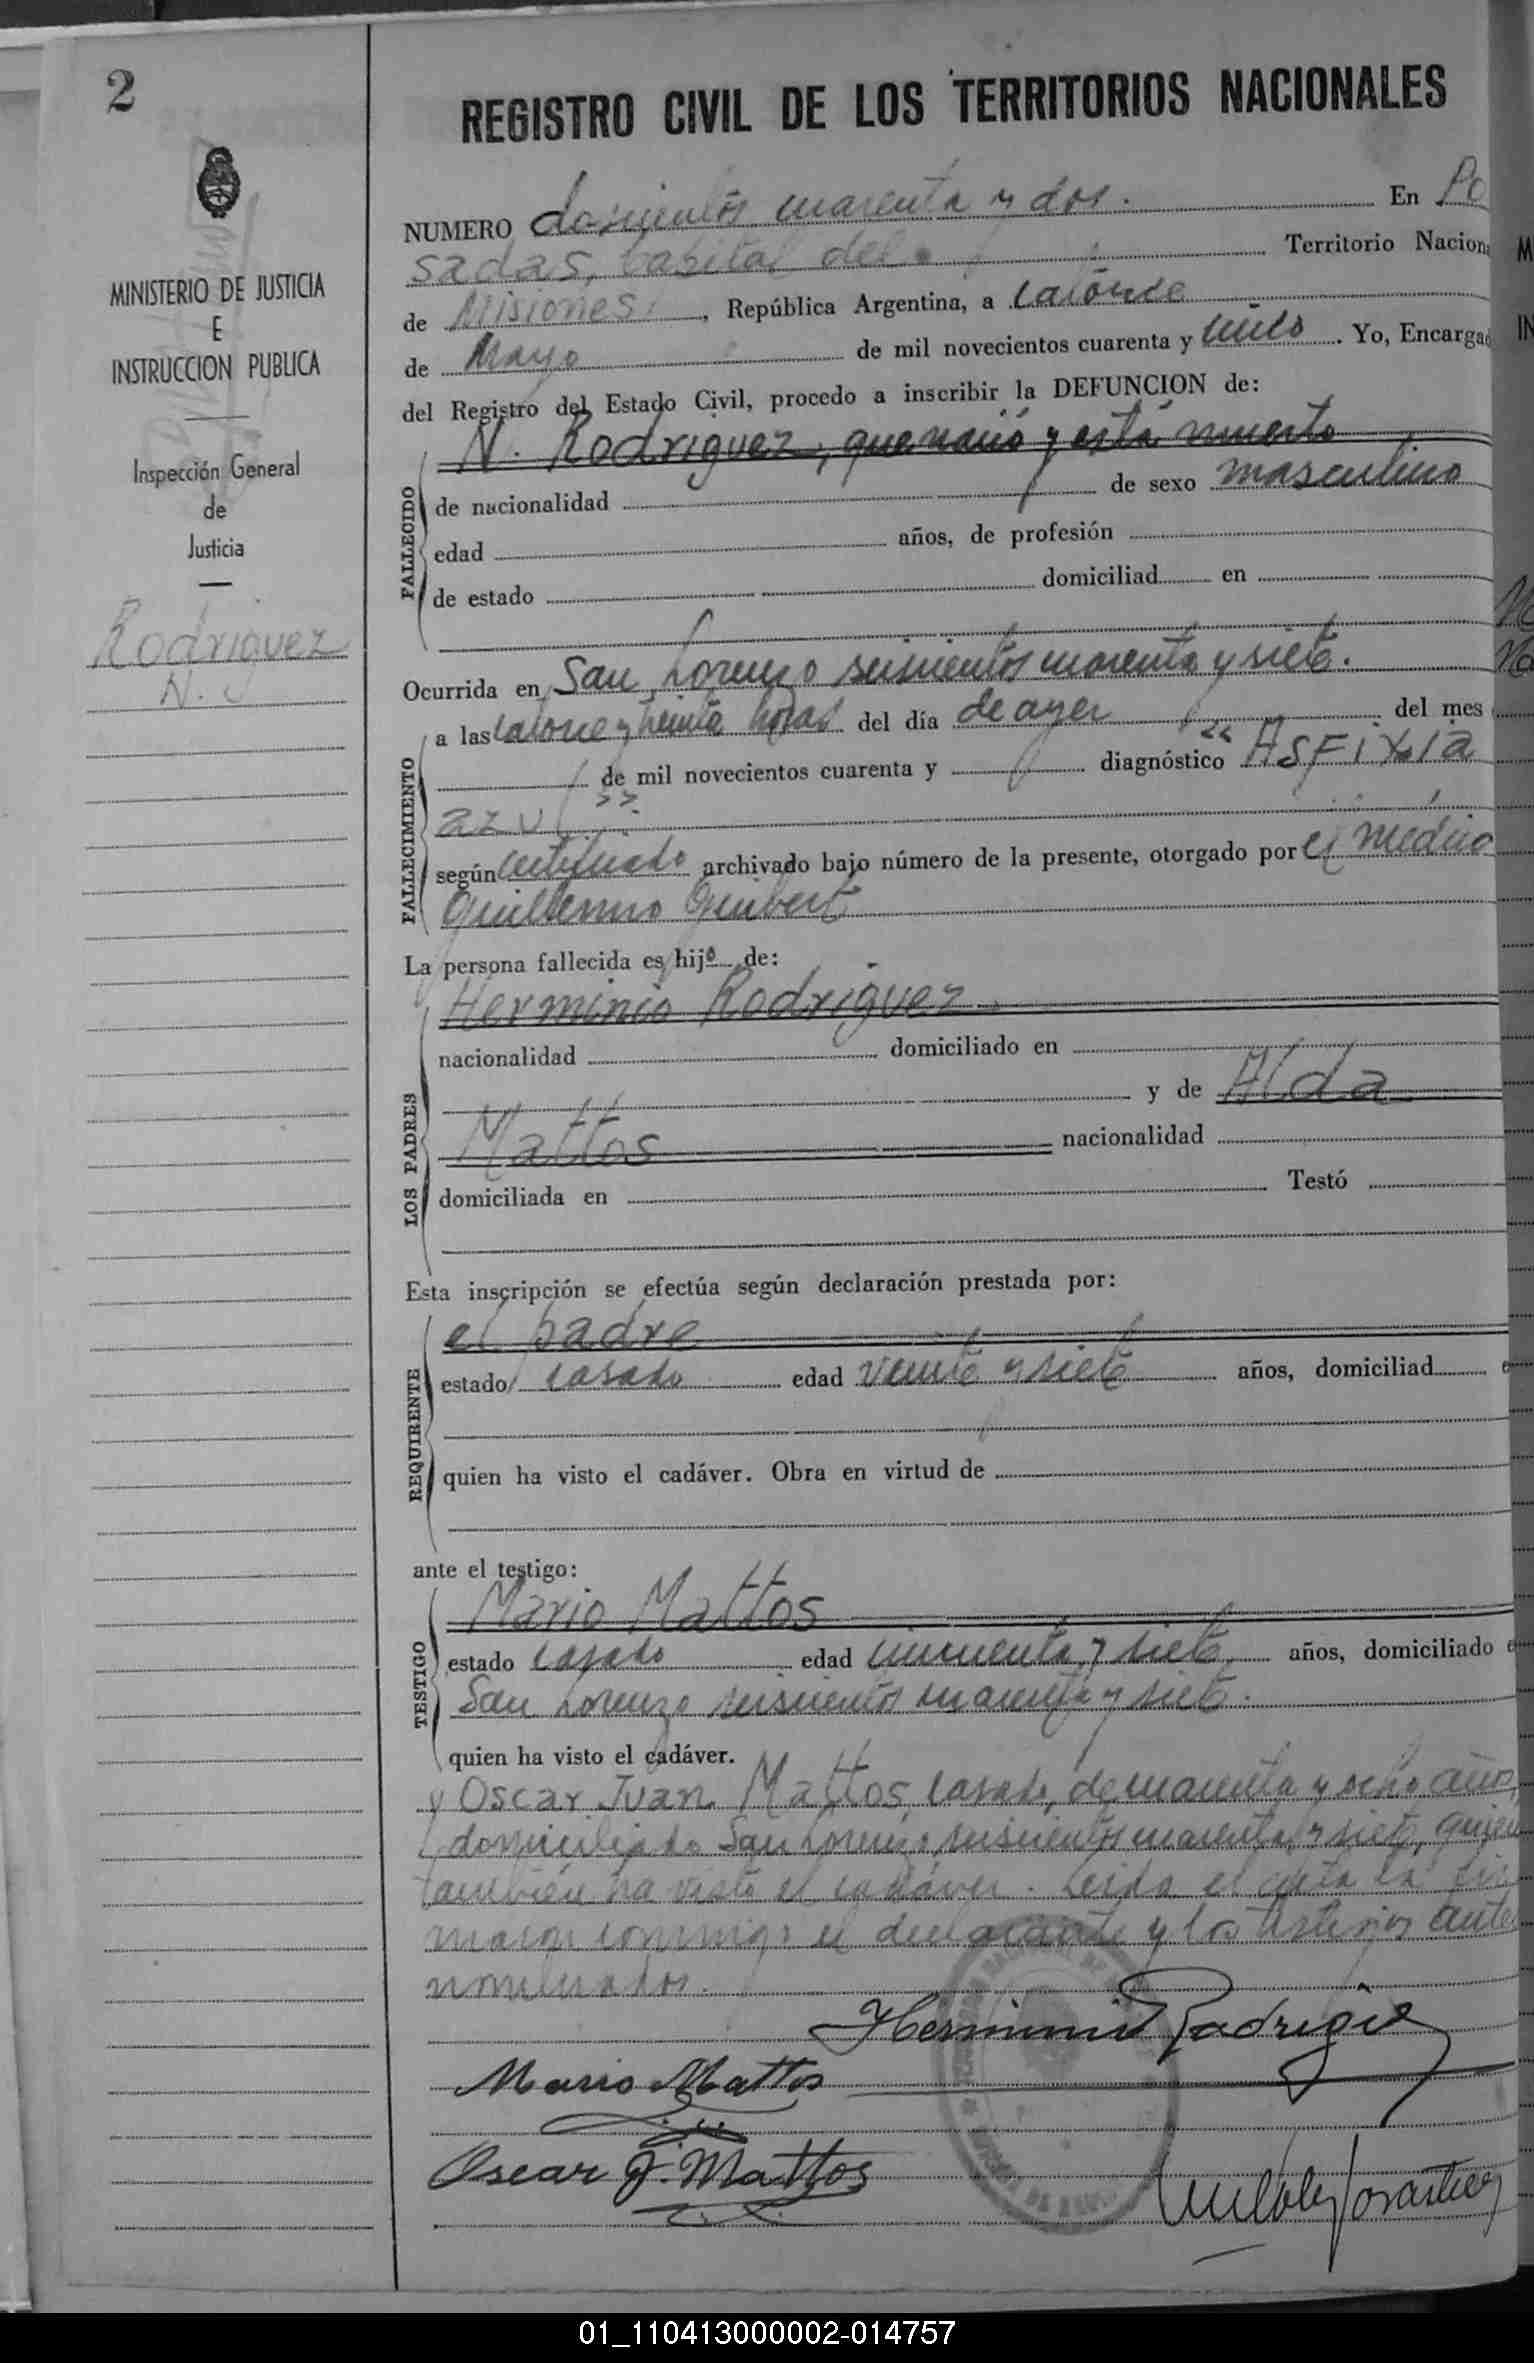 2
REGISTRO CIVIL DE LOS TERRITORIOS NACIONALES
MINISTERIO DE JUSTICIA
E
INSTRUCCION PUBLICA
Inspección General
de
Justicia
Rodriguez
N.
NUMERO doscientos cuarenta y dos. En Po
sadas, Capital del Territorio Naciona
de Misiones, República Argentina, a catorce
de Mayo de mil novecientos cuarenta y cinco. Yo, Encargad
del Registro del Estado Civil, procedo a inscribir la DEFUNCION de:
FALLECIDO
N. Rodriguez, que nació y está muerto
de nacionalidad de sexo masculino
edad años, de profesión
de estado domiciliad en
Ocurrida en San Lorenzo seiscientos cuarenta y siete.
FALLECIMIENTO
a las catorce y treinta horas del día de ayer del mes
de mil novecientos cuarenta y diagnóstico "Asfixia
azul".
según certificado archivado bajo número de la presente, otorgado por el médico
Guillermo Guibert
La persona fallecida es hijo de:
LOS PADRES
Herminio Rodriguez
nacionalidad domiciliado en
y de Alda
Mattos nacionalidad
domiciliada en Testó
Esta inscripción se efectúa según declaración prestada por:
REQUIRENTE
el padre
estado casado edad veinte y siete años, domiciliad e
quien ha visto el cadáver. Obra en virtud de
ante el testigo:
TESTIGO
Mario Mattos
estado casado edad cincuenta y siete años, domiciliado e
San Lorenzo seiscientos cuarenta y siete.
quien ha visto el cadáver.
y Oscar Juan Mattos, casado, de cuarenta y ocho años,
domiciliado San Lorenzo seiscientos cuarenta y siete, quien
también ha visto el cadáver. Leida el acta la fir
maron conmigo el declarante y los testigos ante
nombrados.
Herminio Rodrigue
Mario Mattos
Oscar J. Mattos
01_110413000002-014757